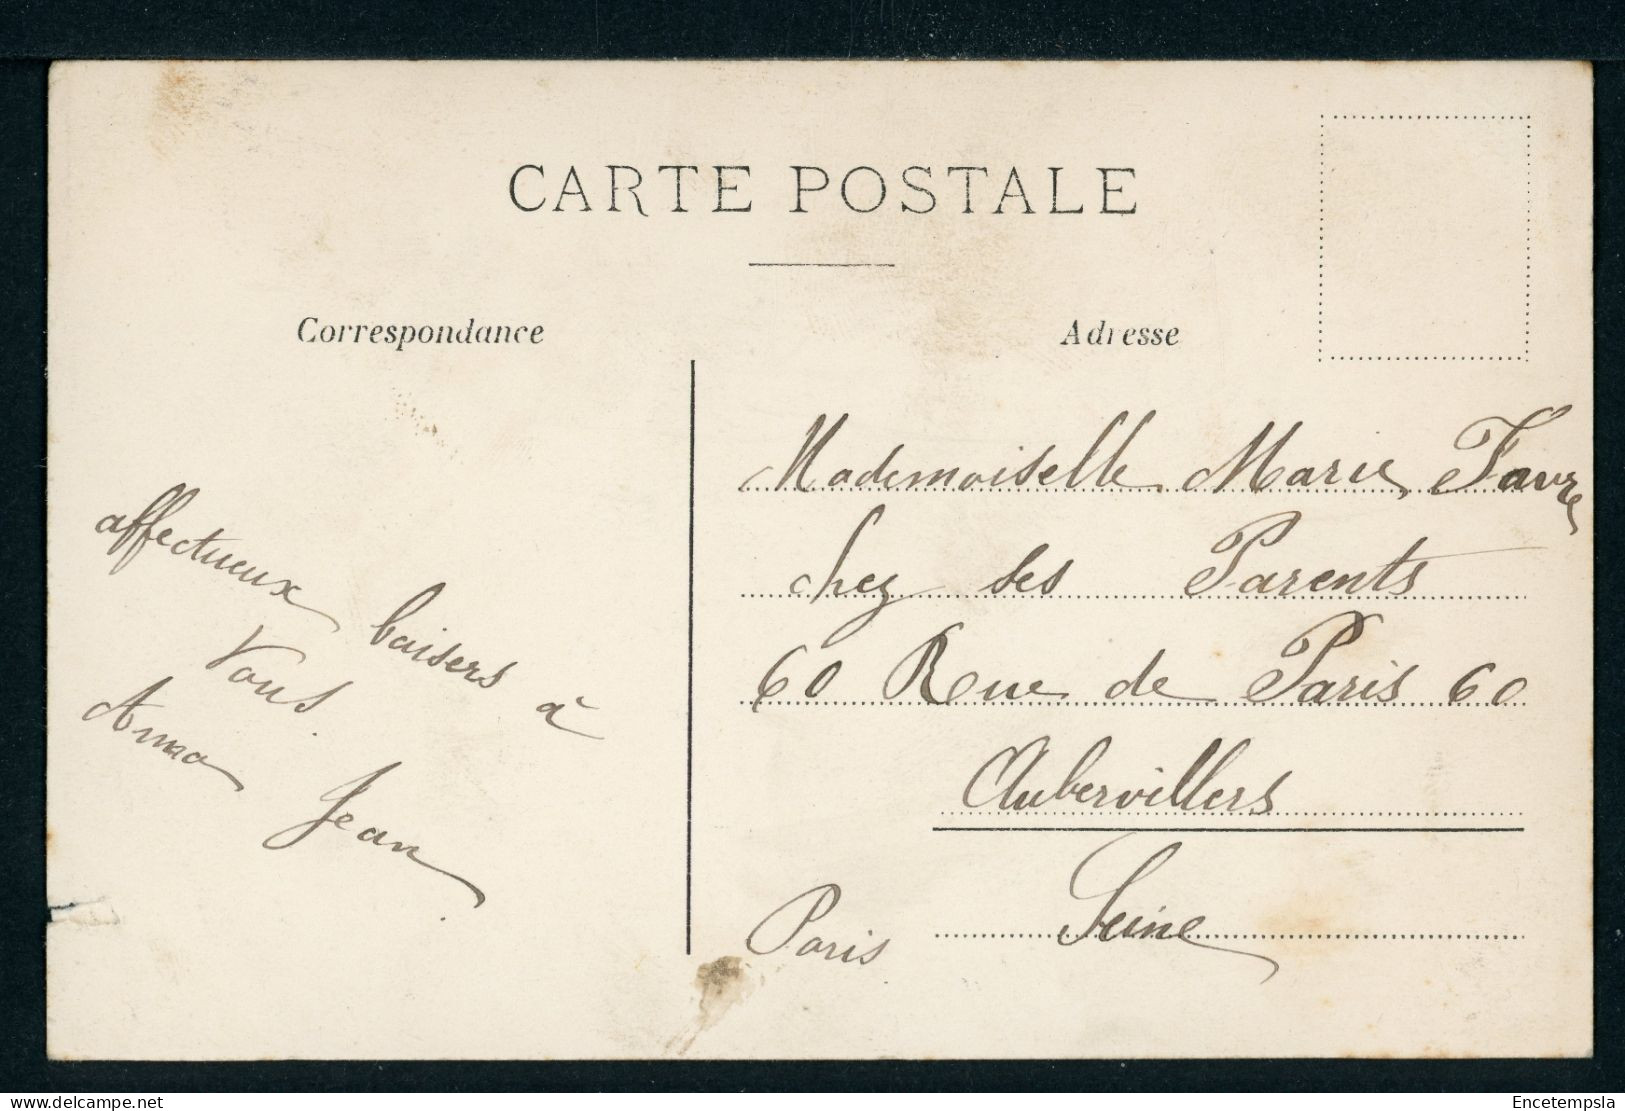 CARTE POSTALE
Correspondance
Adresse
affectueux baisers à
Vous.
Anna
Jean
Mademoiselle Marie Favre
chez ses Parents
60 Rue de Paris 60
Aubervillers
Seine
Paris
delcampe.net
Encetempsla